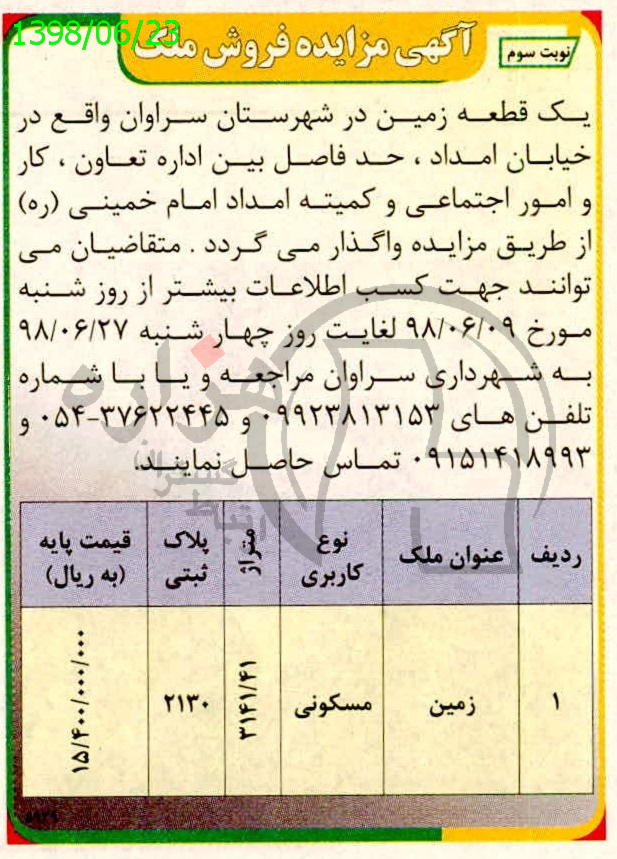 1398/06/23
آگهی مزایده فروش ملک
نوبت سوم
یک قطعه زمین در شهرستان سراوان واقع در
خیابان امداد ، حد فاصل بین اداره تعاون ، کار
و امور اجتماعی و کمیته امداد امام خمینی (ره)
از طریق مزایده واگذار می گردد . متقاضیان می
توانند جهت کسب اطلاعات بیشتر از روز شنبه
مورخ ۹۸/۰۶/۰۹ لغایت روز چهار شنبه ۹۸/۰۶/۲۷
به شهرداری سراوان مراجعه و یا با شماره
تلفن های ۰۹۹۲۳۸۱۳۱۵۳ و ۳۷۶۲۲۴۴۵-۰۵۴ و
۰۹۱۵۱۴۱۸۹۹۳ تماس حاصل نمایند.
ردیف عنوان ملک نوع کاربری متراژ پلاک ثبتی قیمت پایه (به ریال)
۱ زمین مسکونی ۳۱۴۱/۴۱ ۲۱۳۰ ۱۵/۴۰۰/۰۰۰/۰۰۰
هزاره